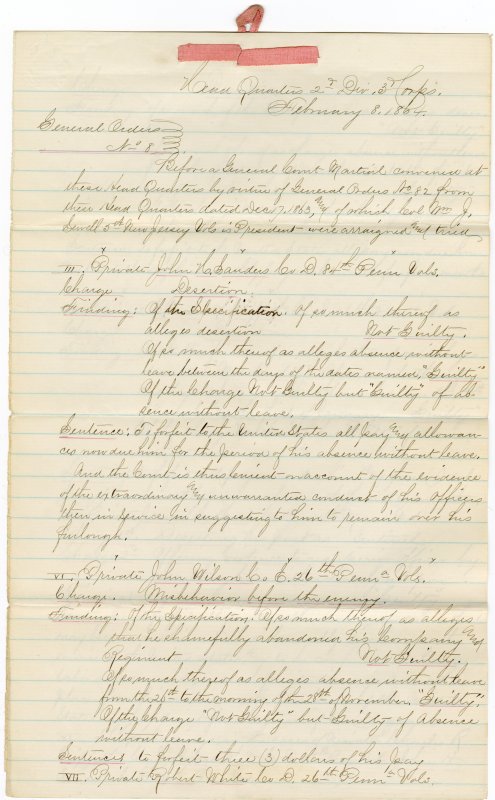 Head Quarters 2d Div. 3d Corps.
February 8. 1864.
General Orders
No 8
Before a General Court Martial convened at
these Head Quarters by virtue of General Orders No 82 from
these Head Quarters dated Dec 7, 1863, and of which Col Wm J.
Sewell 5th New Jersey Vols is President were arraigned and tried
III. "Private John H. Sanders Co D. 84th Penn" Vols.
Charge Desertion.
Finding: Of the Specification. Of so much thereof as
alleges desertion Not Guilty.
Of so much thereof as alleges absence without
leave between the days of the dates named, "Guilty."
Of the Charge Not Guilty but "Guilty" of ab-
sence without leave.
Sentence: To forfeit to the United States all pay and allowan-
ces now due him for the period of his absence without leave.
And the Court is thus lenient on account of the evidence
of the extraordinary and unwarranted conduct of his officers
then in service in suggesting to him to remain over his
furlough.
VI. "Private John Wilson Co "E. 26th Penna Vols."
Charge. Misbehavior before the enemy.
Finding: Of the Specification. Of so much thereof as alleges
that he shamefully abandoned his Company and
Regiment Not Guilty.
Of so much thereof as alleges absence without leave
from the 26th to the morning of the 28th of November. "Guilty".
Of the Charge "Not Guilty" but Guilty of Absence
without leave.
Sentence; to forfeit three (3) dollars of his pay
VII. Private Robert White Co D. 26th Penna Vols.